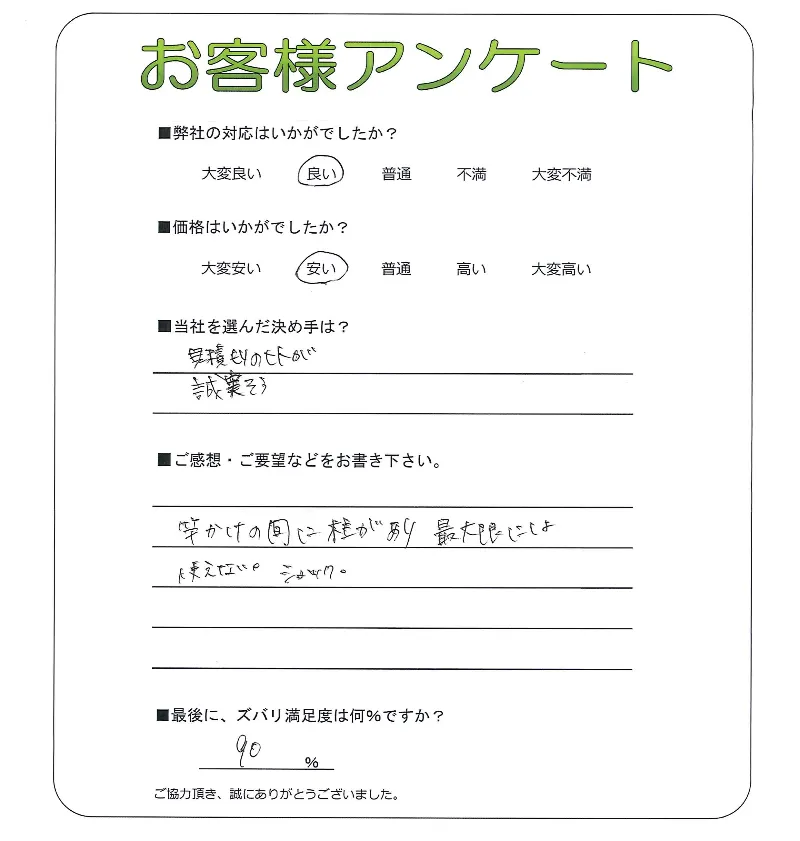 お客様アンケート
■弊社の対応はいかがでしたか？
大変良い 良い 普通 不満 大変不満
■価格はいかがでしたか？
大変安い 安い 普通 高い 大変高い
■当社を選んだ決め手は？
見積もりの七下が
誠実そう
■ご感想・ご要望などをお書き下さい。
竿かけの間に柱があり 最大限には
使えない。 ショック。
■最後に、ズバリ満足度は何%ですか？
90 %
ご協力頂き、誠にありがとうございました。